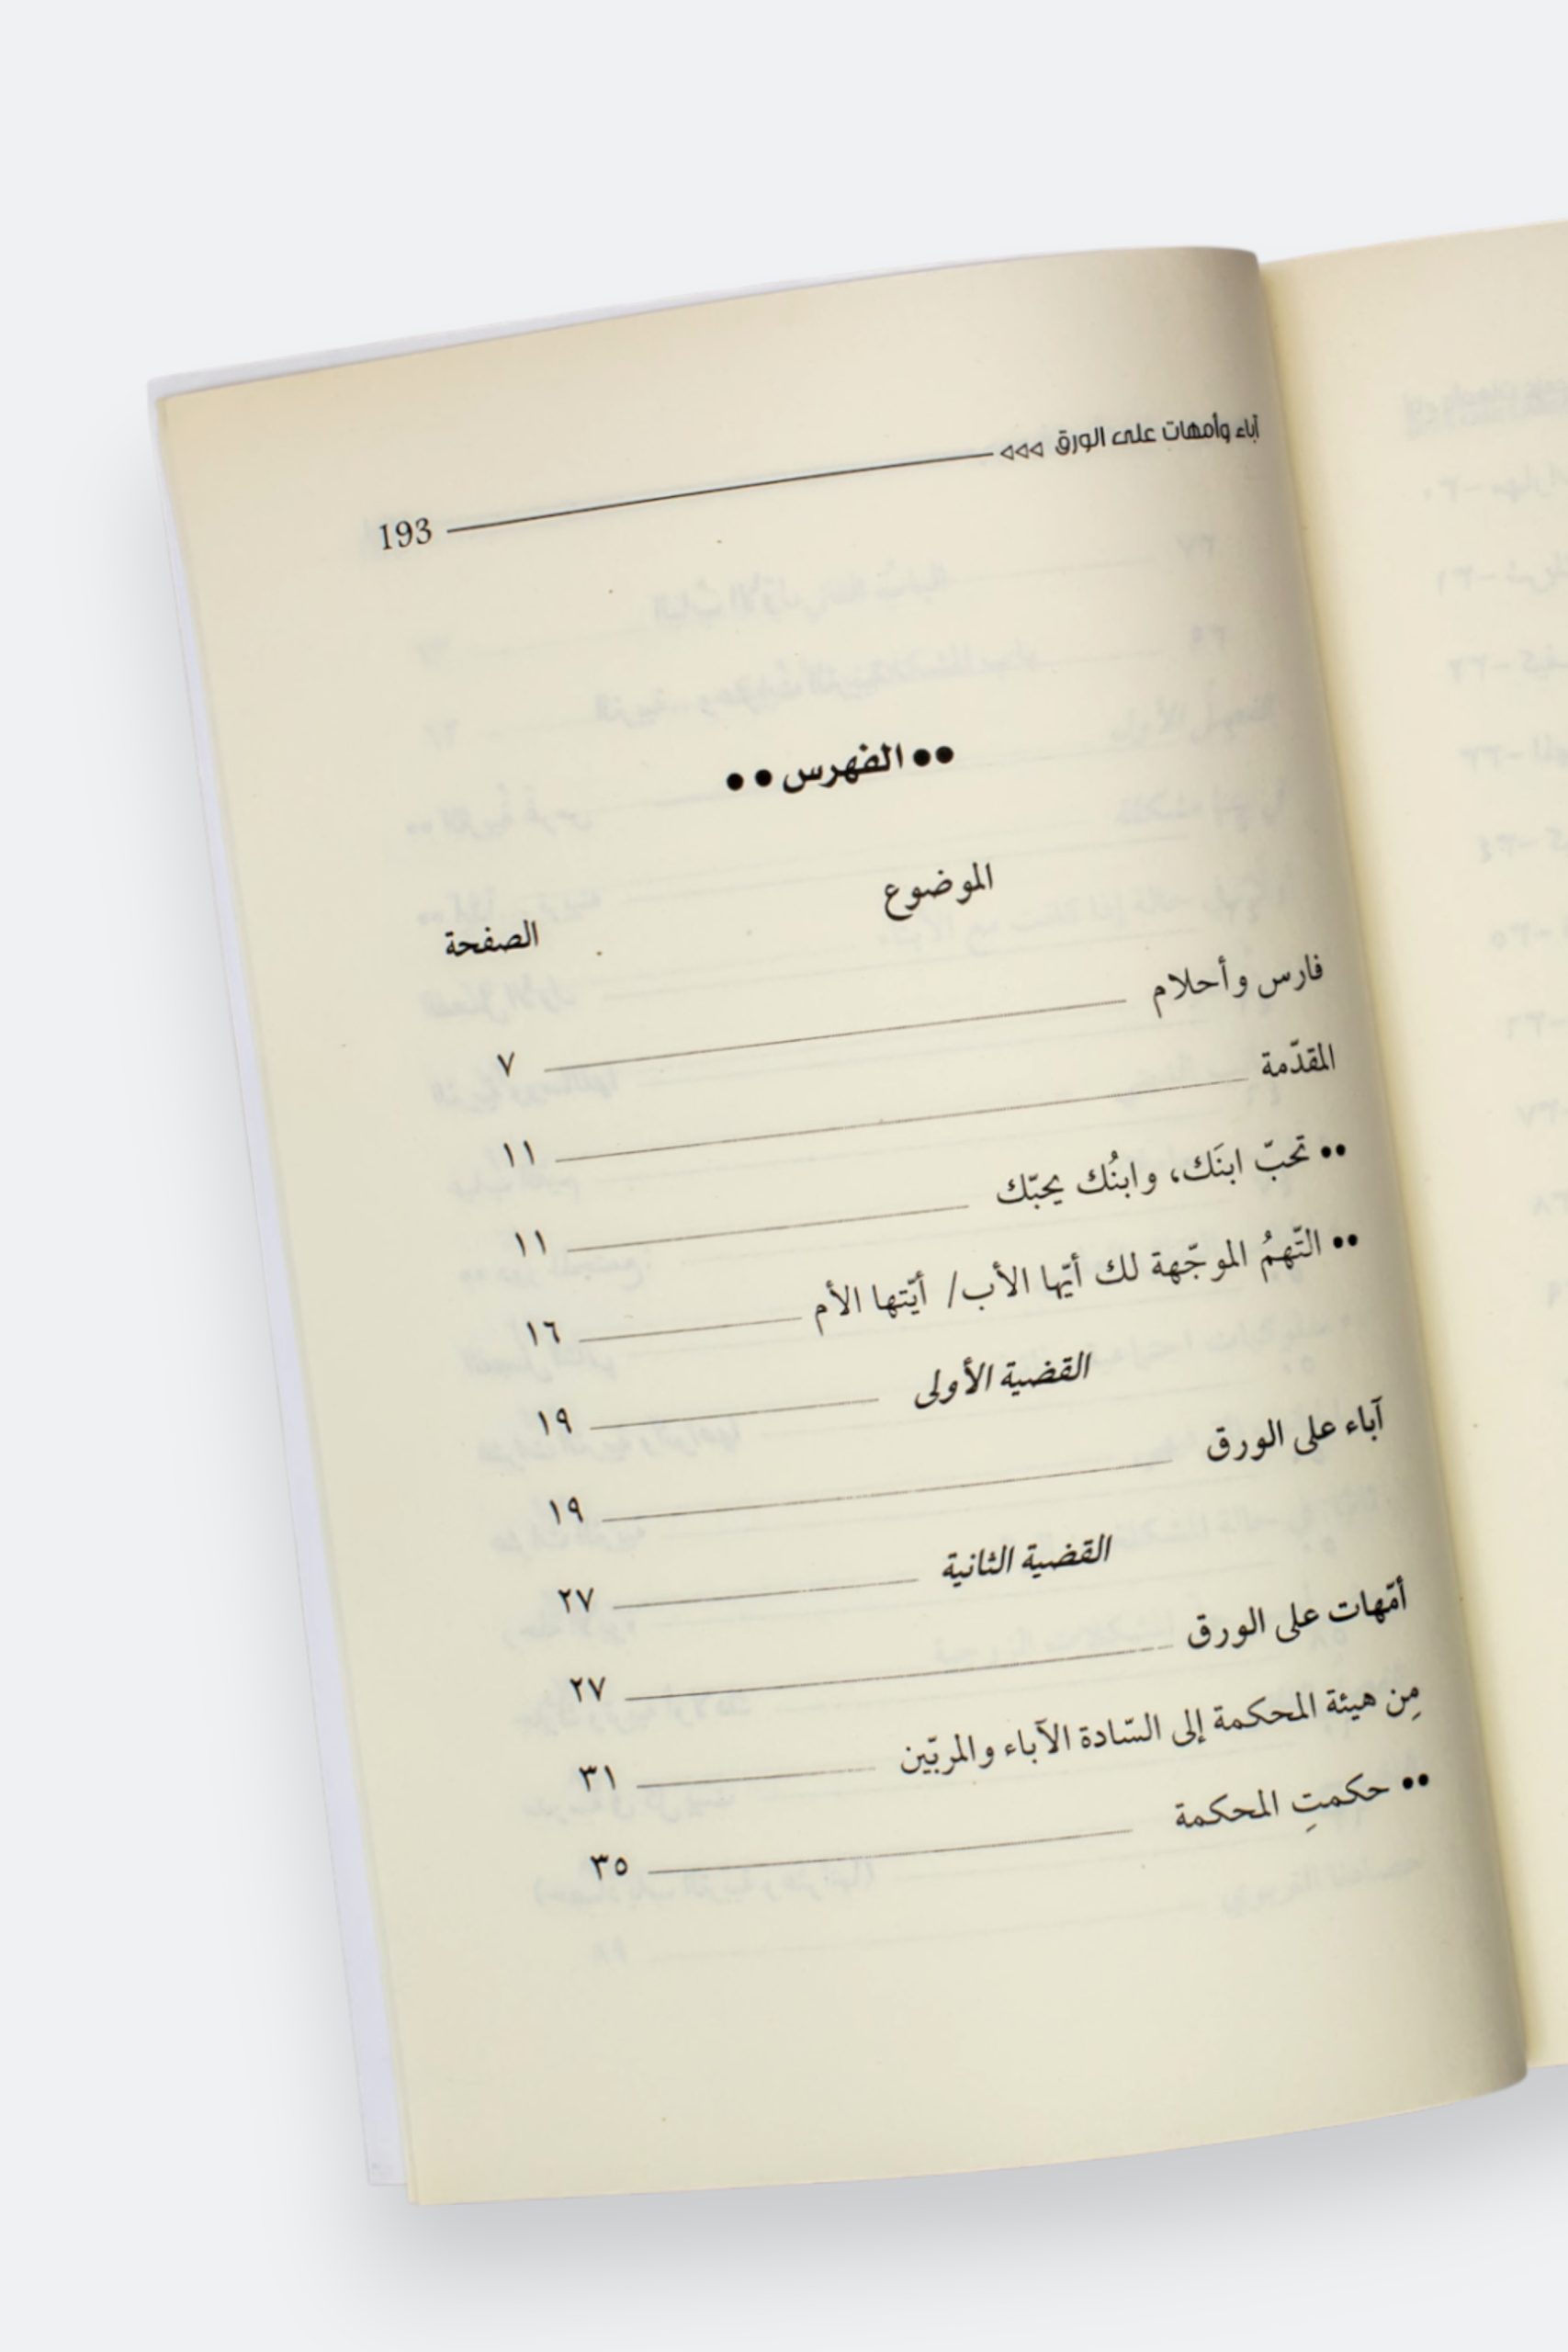 آباء وأمهات على الورق ▷▷▷ 193
•• الفهرس ••
الموضوع
الصفحة
فارس وأحلام ٧
المقدّمة ١١
•• تحبّ ابنَك، وابنُك يحبّك ١١
•• التّهمُ الموجّهة لك أيّها الأب/ أيّتها الأم ١٦
القضية الأولى ١٩
آباء على الورق ١٩
القضية الثانية ٢٧
أمّهات على الورق ٢٧
مِن هيئة المحكمة إلى السّادة الآباء والمربّين ٣١
•• حكمتِ المحكمة ٣٥